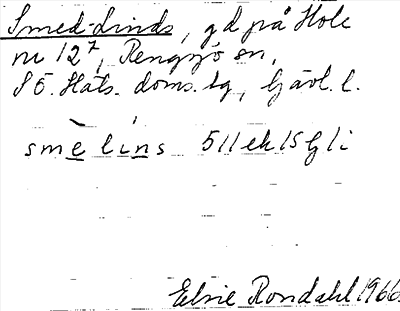 Smed-Linds, gd på Hole
nr 12⁷, Rengsjö sn,
SÖ. Häls. doms. tg, Gävl. l.
smèlíns 511ek15Gli
Elsie Rondahl 1966.